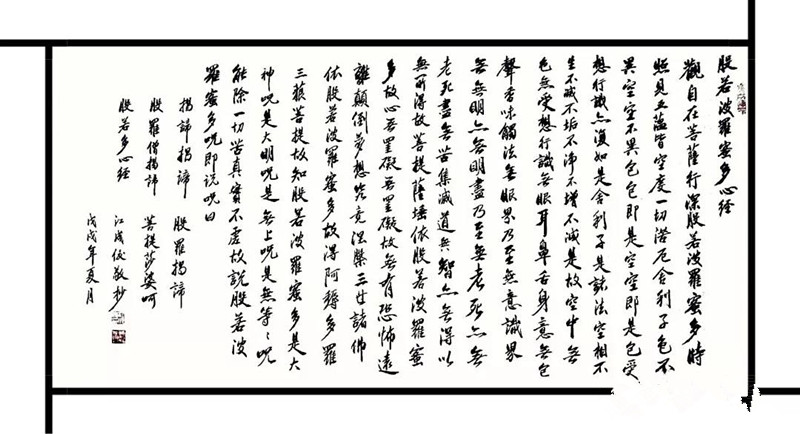 般若波羅蜜多心经
觀自在菩薩行深般若波羅蜜多時
照見五蕴皆空度一切苦厄舍利子色不
異空空不異色色即是空空即是色受
想行識亦復如是舍利子是諸法空相不
生不滅不垢不淨不增不減是故空中無
色無受想行識無眼耳鼻舌身意無色
聲香味觸法無眼界乃至無意識界
無無明亦無明盡乃至無老死亦無
老死盡無苦集滅道無智亦無得以
無所得故菩提薩埵依般若波羅蜜
多故心無罣礙無罣礙故無有恐怖遠
離顛倒夢想究竟涅槃三世諸佛
依般若波羅蜜多故得阿耨多羅
三藐菩提故知般若波羅蜜多是大
神咒是大明咒是無上咒是無等々咒
能除一切苦真實不虛故說般若波
羅蜜多咒即说咒曰
揭諦揭諦 般羅揭諦
般羅僧揭諦 菩提莎婆呵
般若多心经 江成敬抄
戊戌年夏月